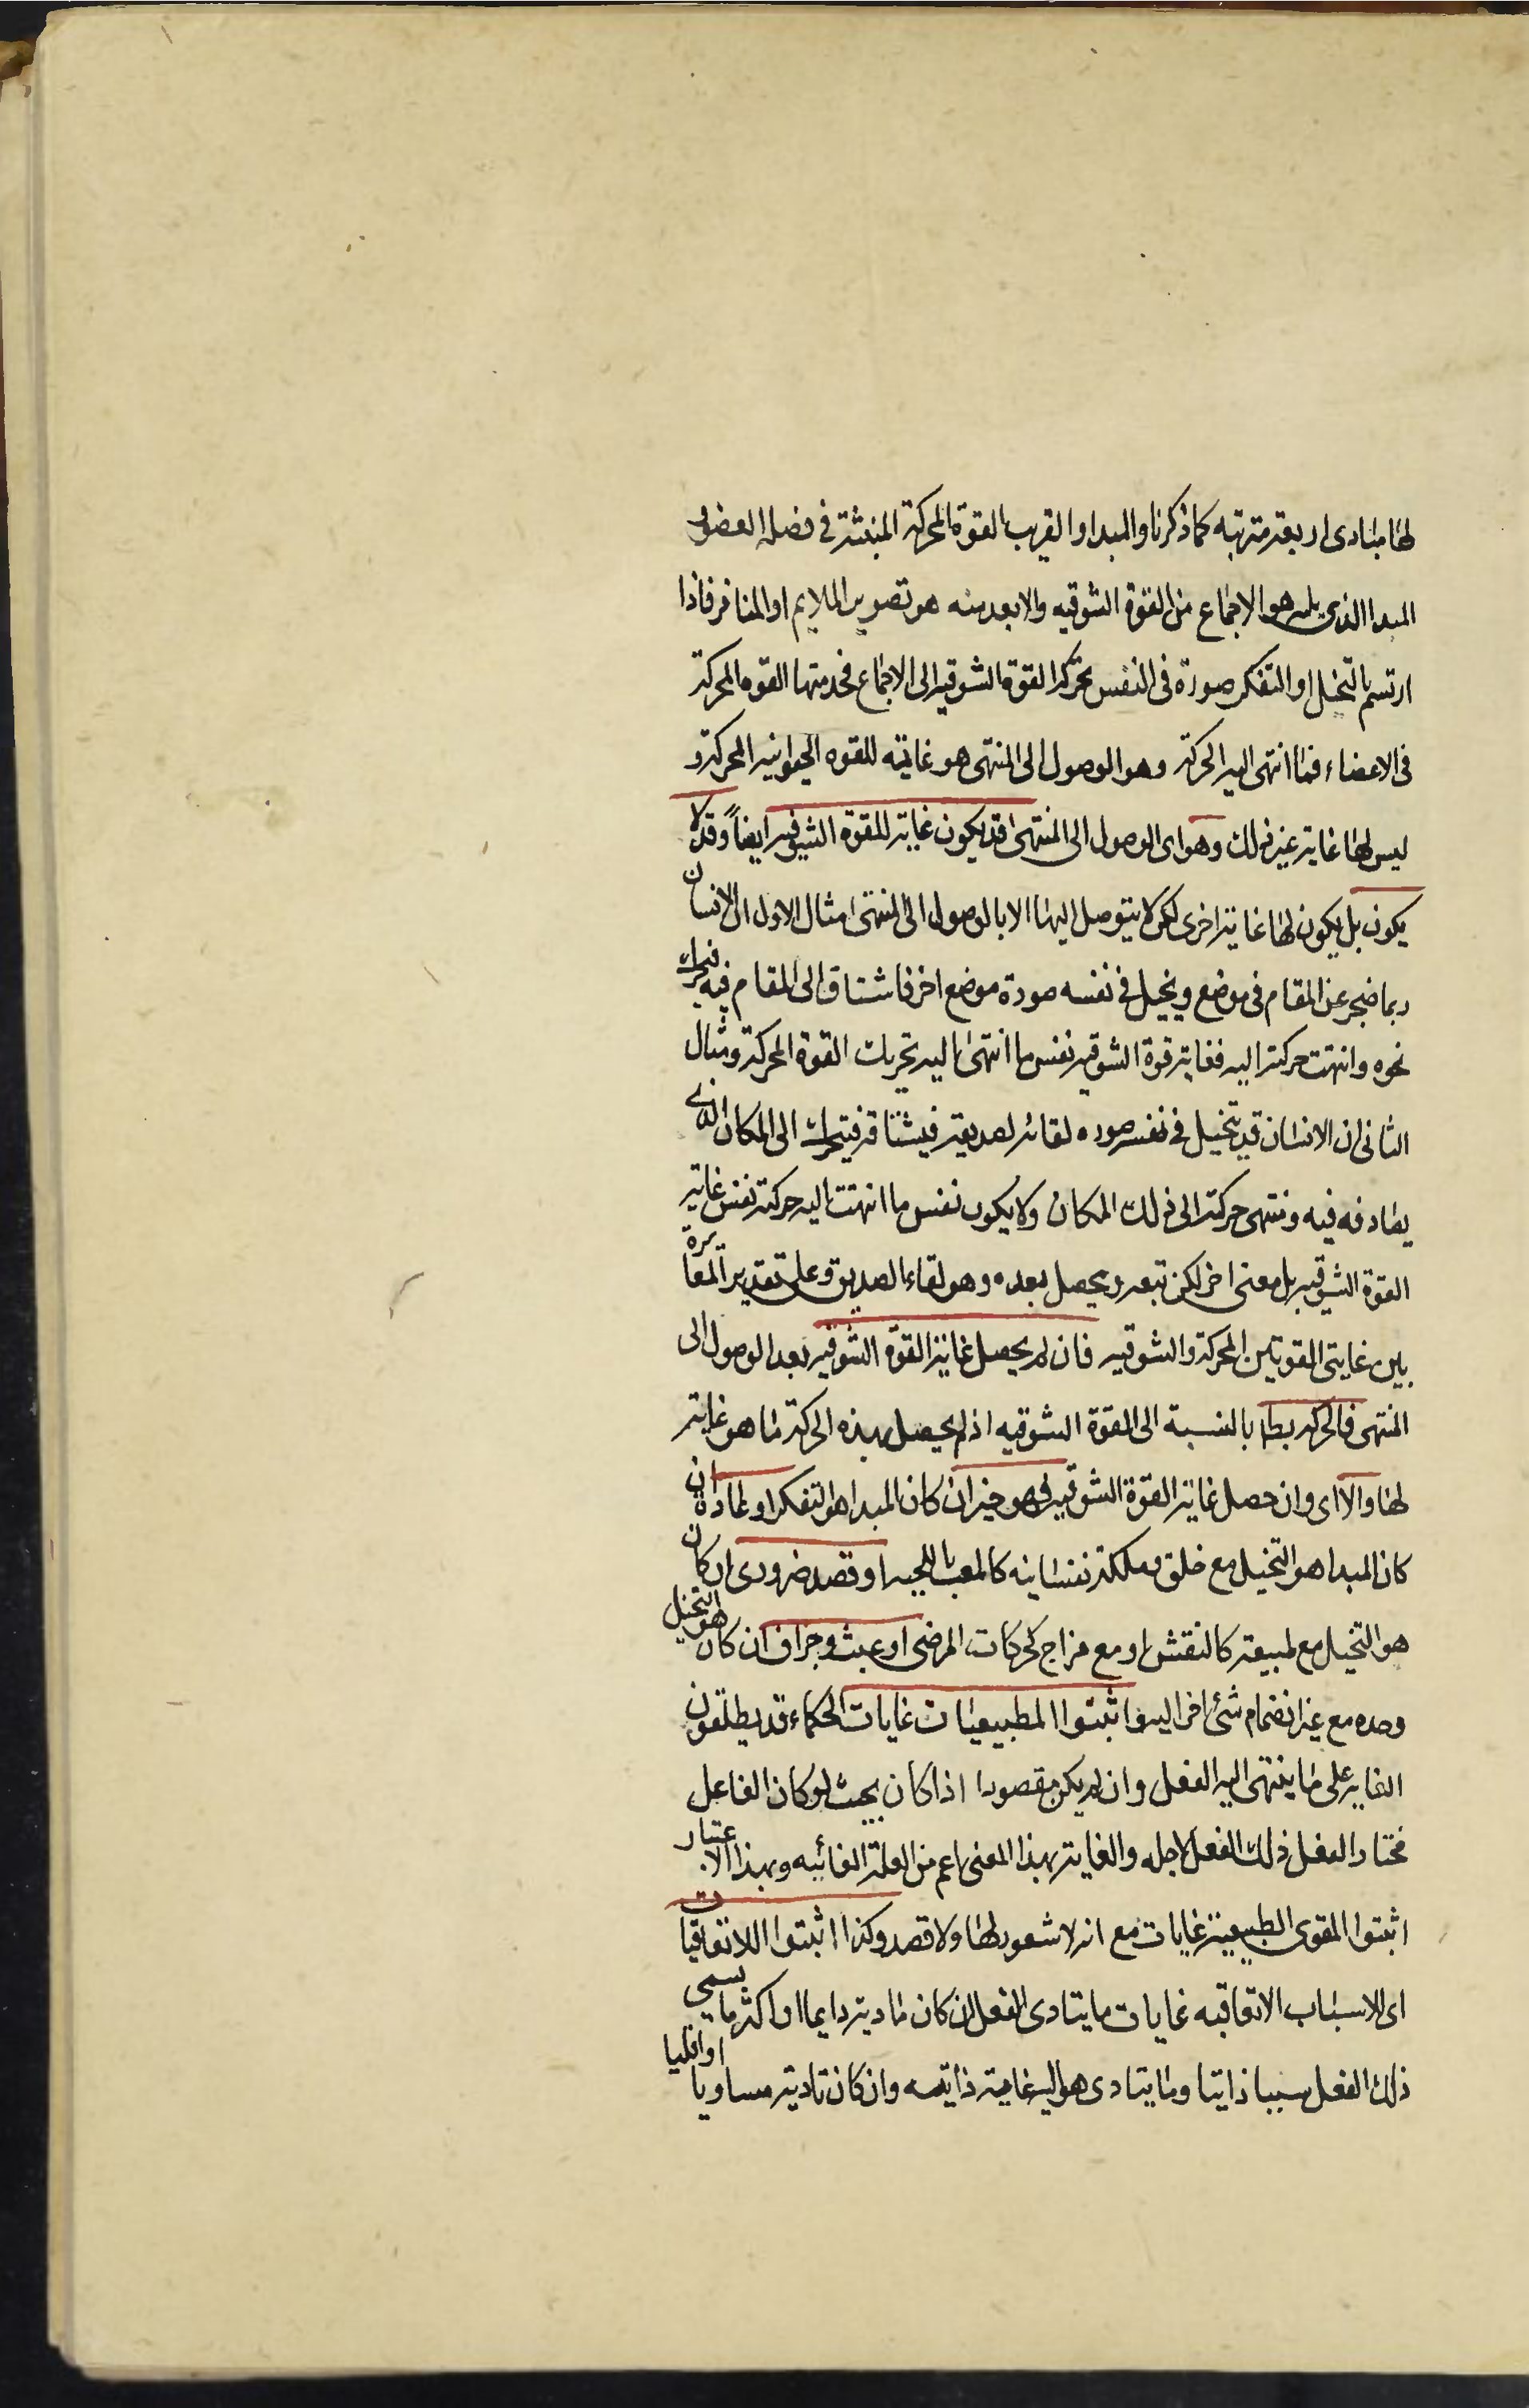 لها مبادى اربعة مترتبه كما ذكرنا والمبداء القريب القوة المحركة المنبثة فى عضلة العضو و
المبدا الذى يليه هو الاجماع من القوة الشوقيه والابعد منه هو تصوير الملايم او المنافر فاذا
ارتسم بالتخيل او التفكر صورة فى النفس تحركت القوة الشوقيه الى الاجماع فخدمتها القوه المحركة
فى الاعضاء فما انتهى اليه الحركة وهو الوصول الى المنتهى هو غايته للقوه الحيوانيه المحركة و
ليس لها غاية غير ذلك وهو اى الوصول الى المنتهى قد يكون غاية للقوة الشوقيه ايضاً وقد لا
يكون بل يكون لها غاية اخرى لكن لا يتوصل اليها الا بالوصول الى المنتهى مثال الاول ان الانسان
ربما ضجر عن المقام فى موضع ويخيل فى نفسه صورة موضع اخر فاشتاق الى المقام فيه فتحرك
نحوه وانتهت حركته اليه فغاية قوة الشوقيه نفس ما انتهى اليه تحريك القوة المحركة ومثال
الثانى ان الانسان قد يتخيل فى نفسه صوره لقائه لصديقه فيشتاقه فيتحرك الى المكان الذى
يصادفه فيه وتنتهى حركته الى ذلك المكان ولا يكون نفس ما انتهت اليه حركته نفس غاية
القوة الشوقيه بل معنى اخر لكن تبعه ويحصل بعده وهو لقاء الصديق وعلى تقدير المغايرة
بين غايتى القوتين المحركة والشوقيه فان لم يحصل غاية القوة الشوقيه بعد الوصول الى
المنتهى فالحركه بطا بالنسبة الى القوة الشوقيه اذ لم يحصل بهذه الحركة ما هو غاية
لها والا اى وان حصل غاية القوة الشوقيه فهو خير ان كان المبدا هو التفكر او عادة ان
كان المبدا هو التخيل مع خلق وملكة نفسانيه كاللعب باللحيه او قصد ضرورى ان كان
هو التخيل مع طبيعة كالتنفس او مع مزاج كحركات المرضى او عبث وجزاف ان كان هو التخيل
وحده مع غير انضمام شئ اخر اليه واثبتوا للطبيعيات غايات الحكماء قد يطلقون
الغايه على ما ينتهى اليه الفعل وان لم يكن مقصودا اذا كان بحيث لو كان الفاعل
مختارا لفعل ذلك الفعل لاجله والغاية بهذا المعنى اعم من العلة الغائيه وبهذا الاعتبار
اثبتوا للقوى الطبيعية غايات مع انه لا شعور لها ولا قصد وكذا اثبتوا للاتفاقيات
اى للاسباب الاتفاقيه غايات ما يتادى الفعل ان كان تاديته دايما او اكثر ما يسمى
ذلك الفعل سببا ذاتيا وما يتادى هو اليه غاية ذاتيه وان كان تاديته مساويا او اقليا